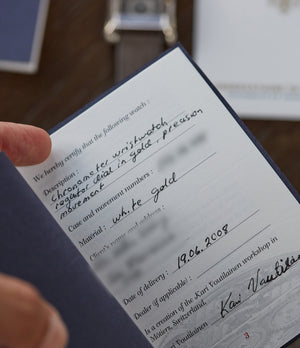 We hereby certify that the following watch :
Description : Chronometer wristwatch
regulator dial in gold - precision
movement
Case and movement numbers :
Material : white gold
Client's name and address :
Date of delivery : 19.06.2008
Dealer (if applicable) :
Is a creation of the Kari Voutilainen workshop in
Môtiers, Switzerland.
Kari Voutilainen
Voutilainen